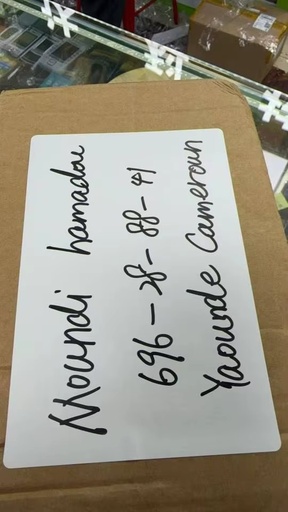 Moundi hamadou
696-28-88-41
Yaounde Cameroun